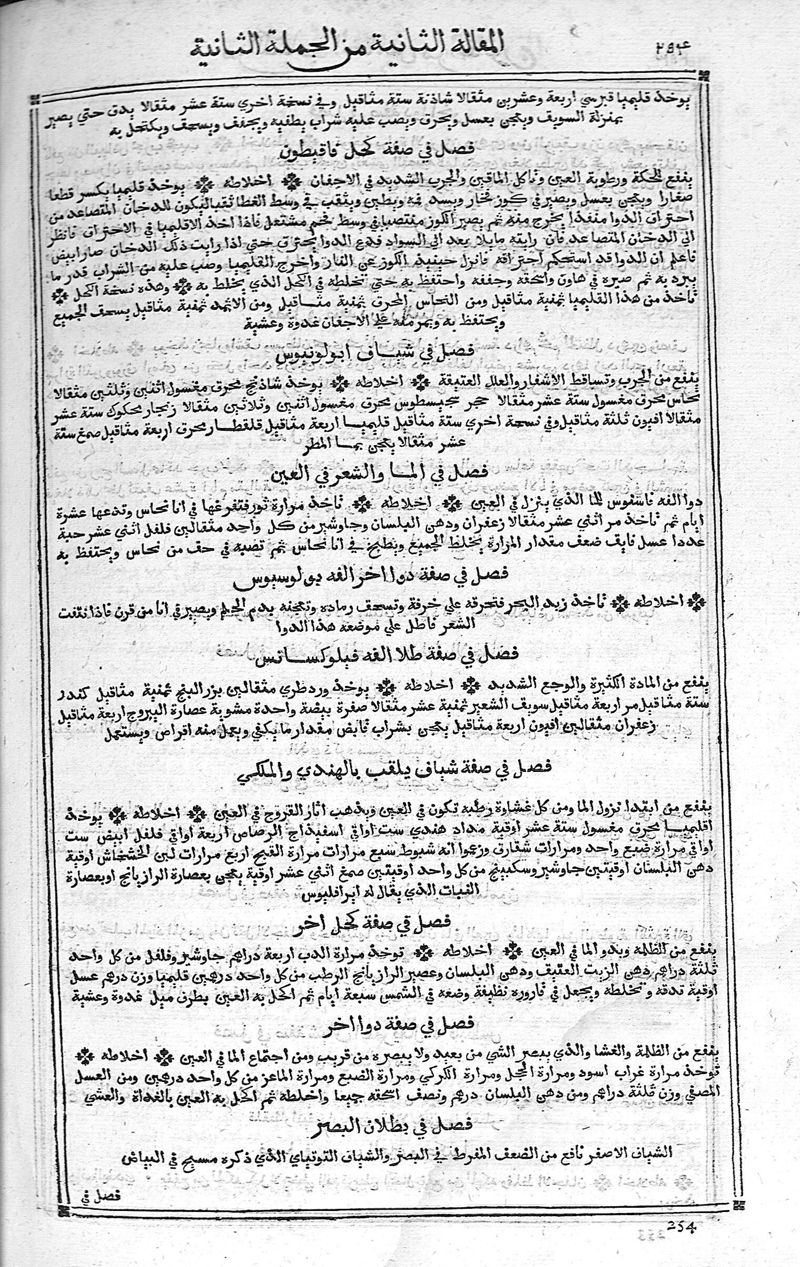 المقالة الثانية من الجملة الثانية
٢٥٤
يوخذ قليميا قبرسي اربعة وعشرين مثقالا شاذنة ستة مثاقيل وفي نسخة اخري ستة عشر مثقالا يدق حتي يصير
بمنزلة السويف ويعجن بعسل ويحرق ويصب عليه شراب يطفيه ويجفف ويسحق ويكتحل به
فصل في صفة كحل فاقيطون
ينفع الحكة ورطوبة العين وتاكل الماقين والجرب الشديد في الاجفان ❖ اخلاطه ❖ يوخذ قليميا يكسر قطعا
صغارا ويعجن بعسل ويصير في كوز فخار ويسد فمه ويطين ويثقب في وسط الغطا ثقبا ليكون الدخان المتصاعد من
احتراق الدوا منفذا يخرج منه ثم يصير الكوز منتصبا في وسط فحم مشتعل فاذا اخذ الاقليميا في الاحتراق فانظر
الي الدخان المتصاعد فان رايته مايلا بعد الي السواد فدع الدوا يحترق حتي اذا رايت ذلك الدخان صار ابيض
فاعلم ان الدوا قد استحكم احتراقه فانزل حينيذ الكوز عن النار واخرج القليميا وصب عليه من الشراب قدر ما
يبرد به ثم صيره في هاون واسحقه وجففه واحتفظ به حتي تخلطه في الكحل الذي يخلط به ❖ وهذه نسخة الكحل ❖
تاخذ من هذا القليميا ثمنية مثاقيل ومن النحاس المحرق ثمنية مثاقيل ومن الاثمد ثمنية مثاقيل يسحق الجميع
ويحتفظ به ويمر منه علي الاجفان غدوة وعشية
فصل في شياف ابولونيوس
ينفع من الجرب وتساقط الاشفار والعلل العتيقة ❖ اخلاطه ❖ يوخذ شاذنج محرق مغسول اثنين وثلثين مثقالا
نحاس محرق مغسول ستة عشر مثقالا حجر محرق مغسول اثنين وثلاثين مثقالا زنجار محكوك ستة عشر
مثقالا افيون ثلثة مثاقيل وفي نسخة اخري ستة مثاقيل قليميا اربعة مثاقيل قلقطار محرق اربعة مثاقيل صمغ ستة
عشر مثقالا يعجن بما المطر
فصل في الما والشعر في العين
دوا الفه للما الذي ينزل في العين ❖ اخلاطه ❖ تاخذ مرارة ثور فتفرغها في انا نحاس وتدعها عشرة
ايام ثم تاخذ مر اثني عشر مثقالا زعفران ودهن البلسان وجاوشير من كل واحد مثقالين فلفل اثني عشر حبة
عددا عسل فايق ضعف مقدار المرارة يخلط الجميع ويطبخ في انا نحاس ثم تصبه في حق من نحاس ويحتفظ به
فصل في صفة دوا اخر الفه بولوسيوس
❖ اخلاطه ❖ تاخذ زبد البحر فتحرقه علي خرقة وتسحق رماده وتعجنه بدم الحلم ويصير في انا من قرن فاذا نتفت
الشعر فاطل علي موضعه هذا الدوا
فصل في صفة طلا الفه فيلوكسانس
ينفع من المادة الكثيرة والوجع الشديد ❖ اخلاطه ❖ يوخذ ورد طري مثقالين بزر البنج ثمنية مثاقيل كندر
ستة مثاقيل مر اربعة مثاقيل سويف الشعير ثمنية عشر مثقالا صفرة بيضة واحدة مشوية عصارة اليبروج اربعة مثاقيل
زعفران مثقالين افيون اربعة مثاقيل يعجن بشراب قابض مقدار ما يكفي ويعمل منه اقراص ويستعمل
فصل في صفة شياف يلقب بالهندي والملكي
ينفع من ابتدا نزول الما ومن كل غشاوة رطبة تكون في العين ويذهب اثار القروح في العين ❖ اخلاطه ❖ يوخذ
اقليميا محرق مغسول ستة عشر اوقية مداد هندي ست اواقي اسفيذاج الرصاص اربعة اواقي فلفل ابيض ست
اواقي مرارة ضبع واحد ومرارات شفارق وزعموا انه شبوط سبع مرارات مرارة القبج اربع مرارات لبن الخشخاش اوقية
دهن البلسان اوقيتين جاوشير وسكبينج من كل واحد اوقيتين صمغ اثني عشر اوقية يعجن بعصارة الرازيانج او بعصارة
النبات الذي يقال له ايرافليوس
فصل في صفة كحل اخر
ينفع من الظلمة وبدو الما في العين ❖ اخلاطه ❖ توخذ مرارة الدب اربعة دراهم جاوشير وفلفل من كل واحد
ثلثة دراهم دهن الزيت العتيق ودهن البلسان وعصير الرازيانج الرطب من كل واحد درهمين قليميا وزن درهم عسل
اوقية تدقه وتخلطه ويجعل في قارورة نظيفة وضعه في الشمس سبعة ايام ثم اكحل به العين بطرف ميل غدوة وعشية
فصل في صفة دوا اخر
ينفع من الظلمة والغشا والذي يبصر الشي من بعيد ولا يبصره من قريب ومن اجتماع الما في العين ❖ اخلاطه ❖
توخذ مرارة غراب اسود ومرارة الحجل ومرارة الكركي ومرارة الضبع ومرارة الماعز من كل واحد درهمين ومن العسل
المصفي وزن ثلثة دراهم ومن دهن البلسان درهم ونصف اسحقه جميعا واخلطه ثم اكحل به العين بالغداة والعشي
فصل في بطلان البصر
الشياف الاصفر نافع من الضعف المفرط في البصر والشياف التوتياي الذي ذكره مسيح في البياض
فصل في
254